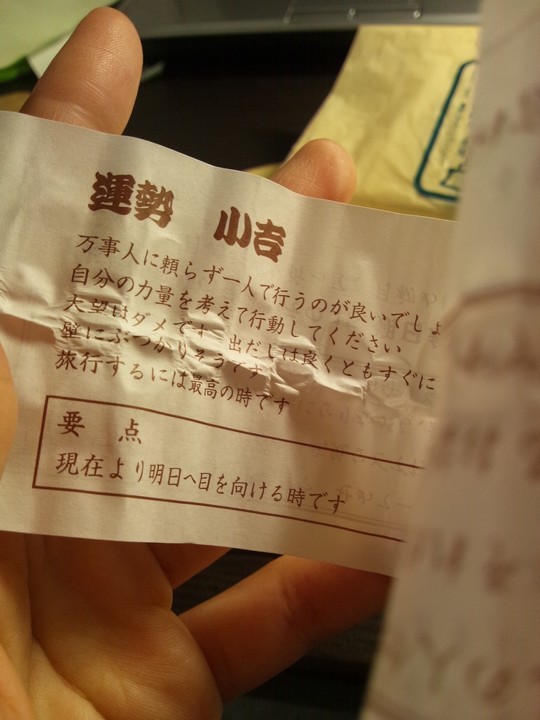 運勢 小吉
万事人に頼らず一人で行うのが良いでしょ
自分の力量を考えて行動してください
大望はダメです 出だしは良くともすぐに
壁にぶつかりそうです
旅行するには最高の時です
要点
現在より明日へ目を向ける時です